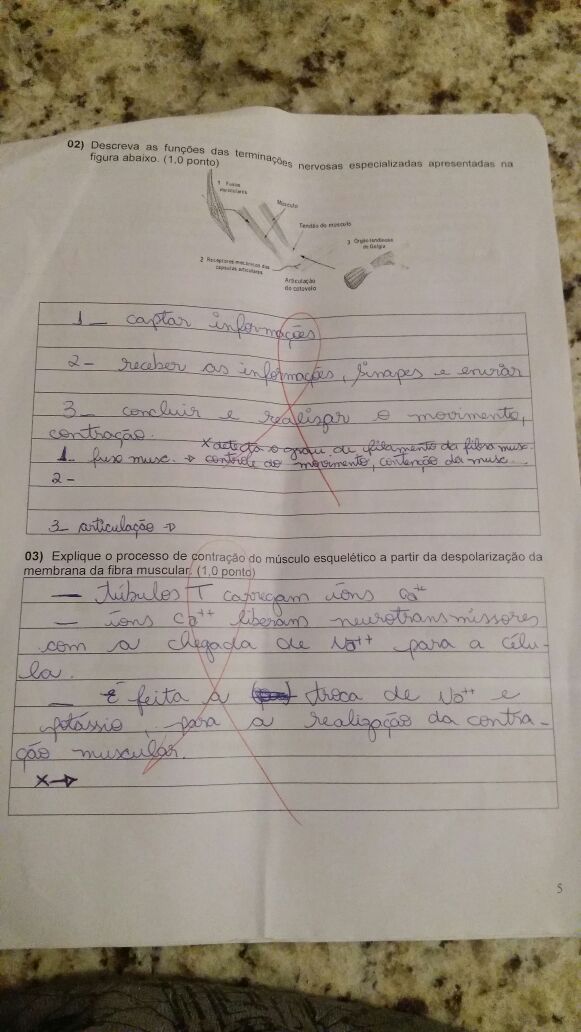 02) Descreva as funções das terminações nervosas especializadas apresentadas na
figura abaixo. (1,0 ponto)
1 Fusos
musculares
Músculo
Tendão do músculo
3 Órgão tendinoso
de Golgi
2 Receptores mecânicos das
cápsulas articulares
Articulação
do cotovelo
1 – captar informações
2 – receber as informações, sinapes e enviar
3 – concluir e realizar o movimento,
contração.
x detecta o grau de filamento da fibra musc.
1. fuso musc. → controle do movimento, contenção da musc...
2 –
3 articulação →
03) Explique o processo de contração do músculo esquelético a partir da despolarização da
membrana da fibra muscular. (1,0 ponto)
— túbulos T carregam íons Ca++
— íons Ca++ liberam neurotransmissores
com a chegada de Na++ para a célu-
la.
— É feita a troca de Na++ e
potássio, para a realização da contra-
ção muscular.
x→
5